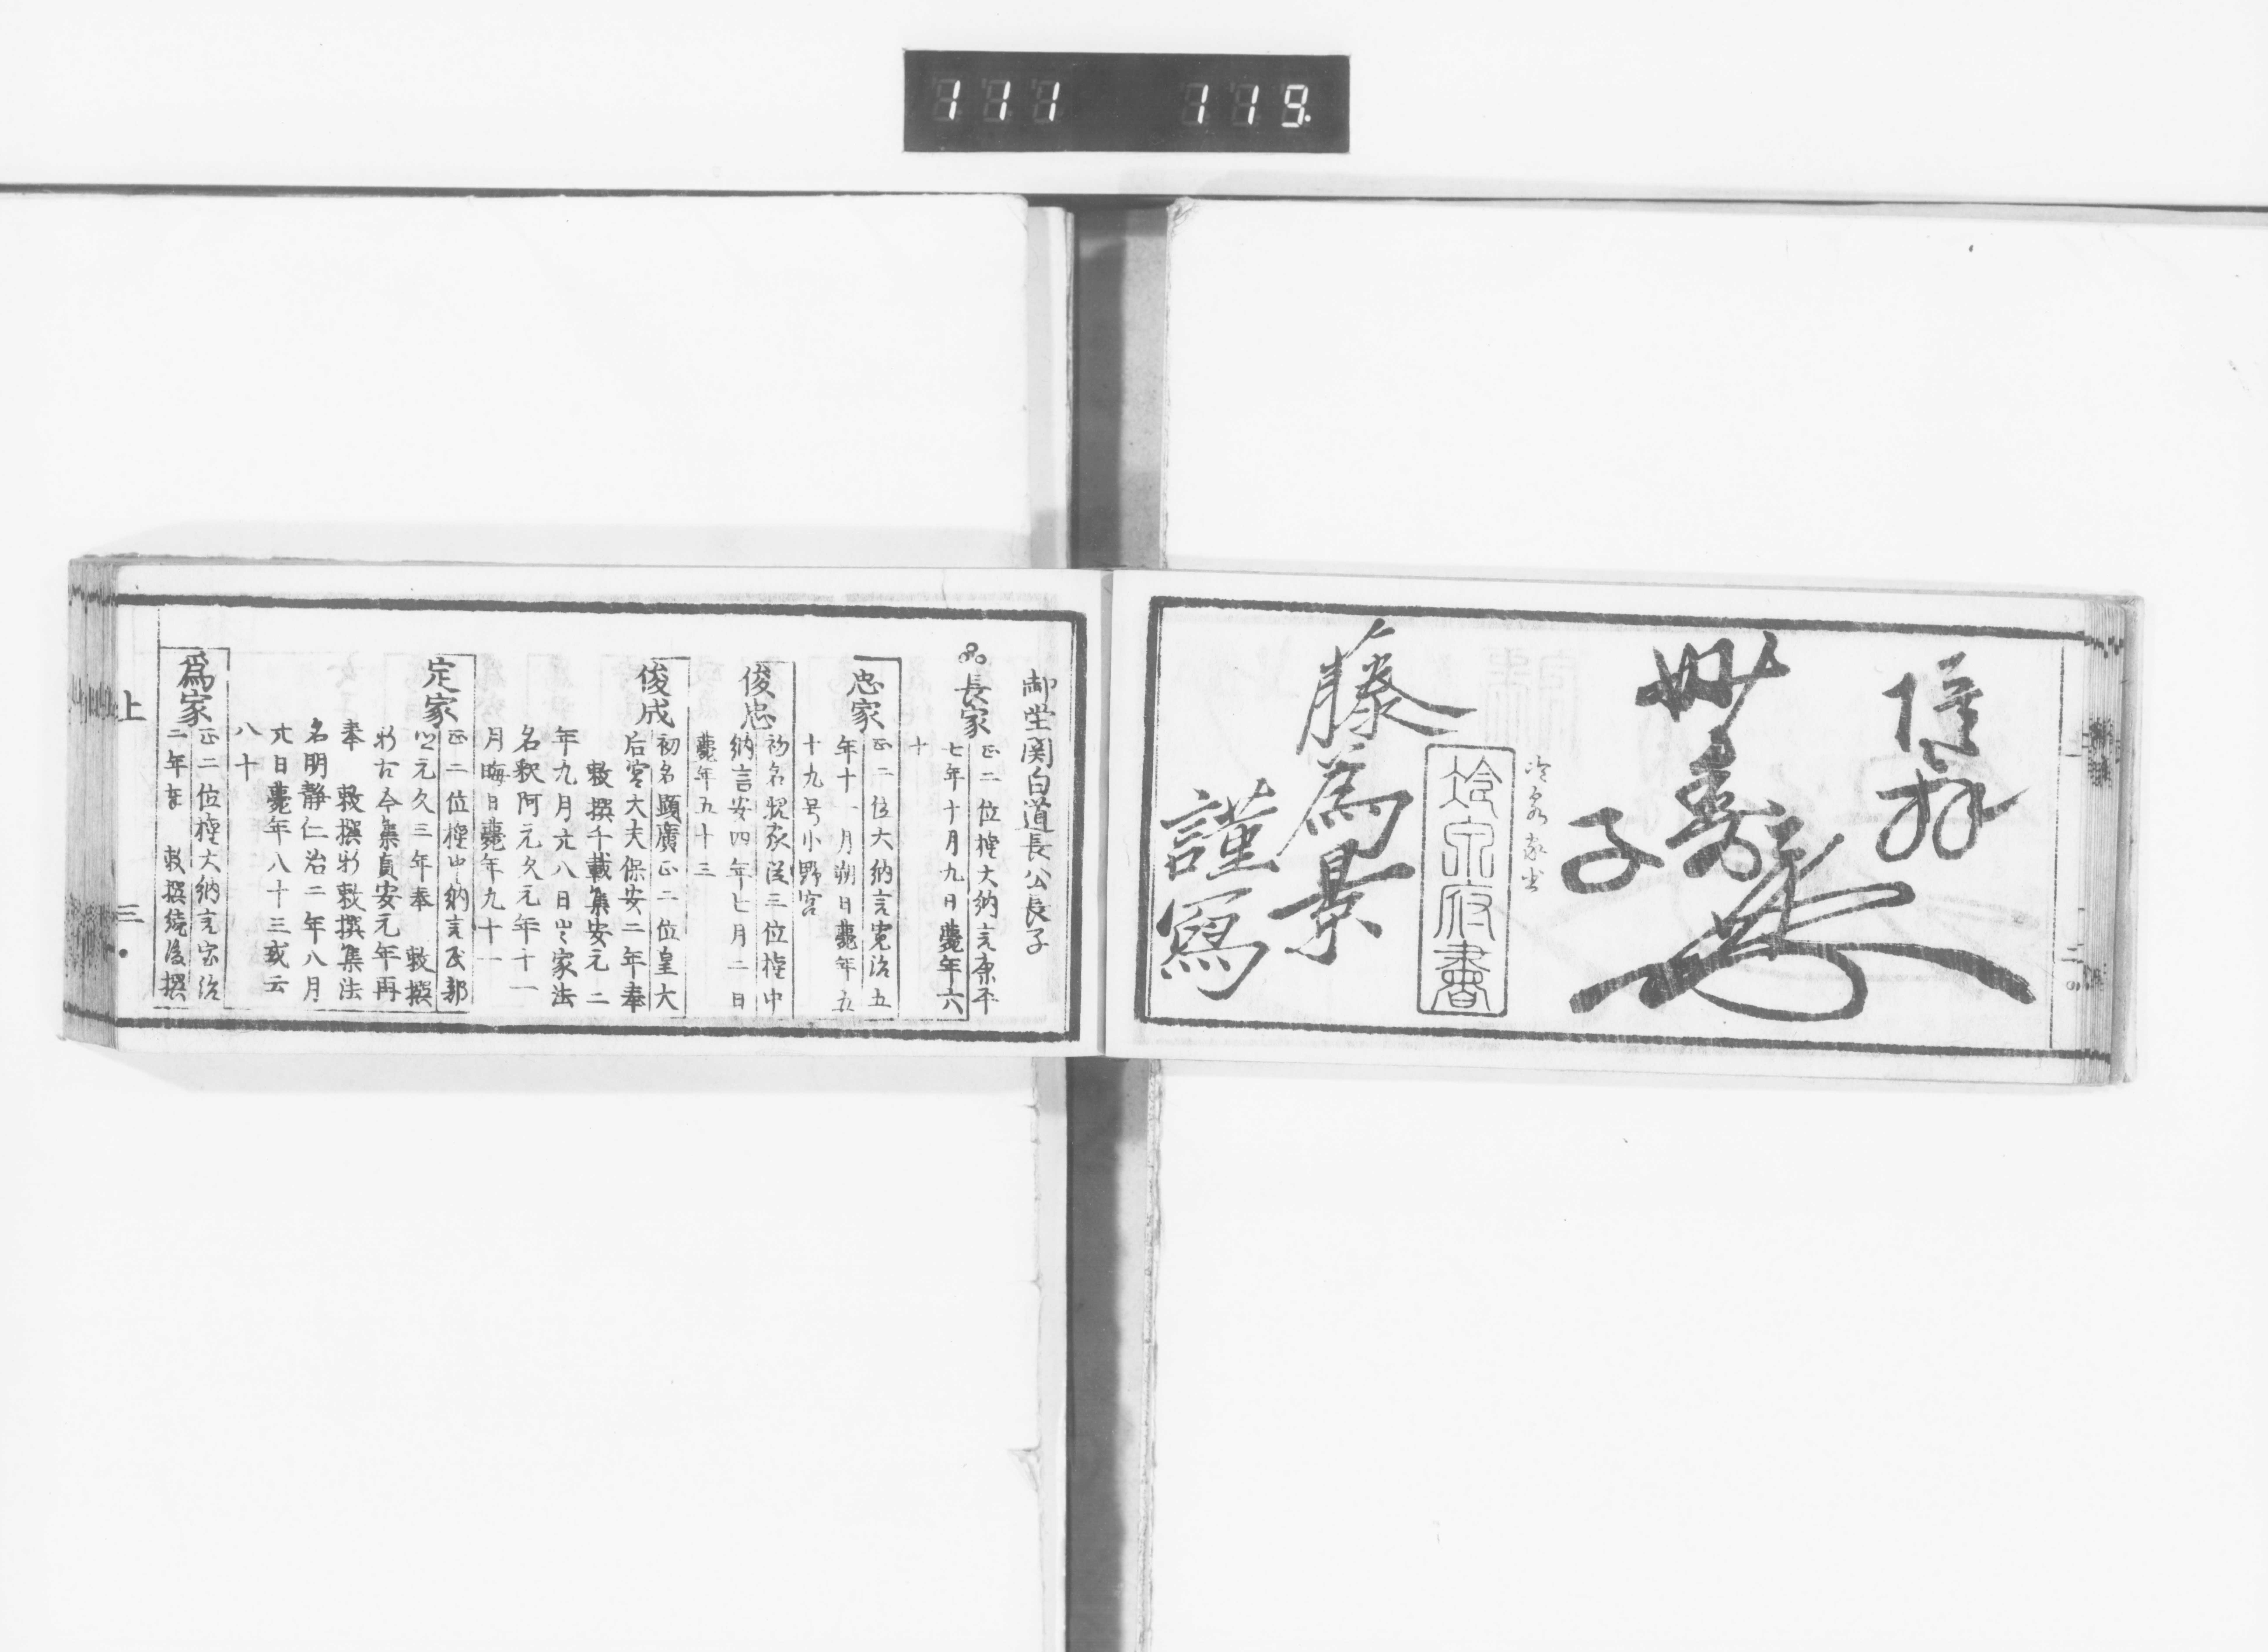 111 119.
妙壽
子
冷泉府書
藤為景
謹寫
御堂関白道長公長子
長家
正二位権大納言康平
七年十月九日薨年六
十
忠家
正二位大納言寛治五
年十一月朔日薨年五
十九号小野宮
俊忠
初名親家從三位権中
納言安四年七月二日
薨年五十三
俊成
初名顕廣正二位皇大
后宮大夫保安二年奉
敕撰千載集安元二
年九月廿八日出家法
名釈阿元久元年十一
月晦日薨年九十一
定家
正二位権中納言民部
元久三年奉 敕撰
新古今集貞安元年再
奉 敕撰新敕撰集法
名明静仁治二年八月
廿日薨年八十三或云
八十
爲家
正二位権大納言宝治
二年奉 敕撰続後撰
上 三